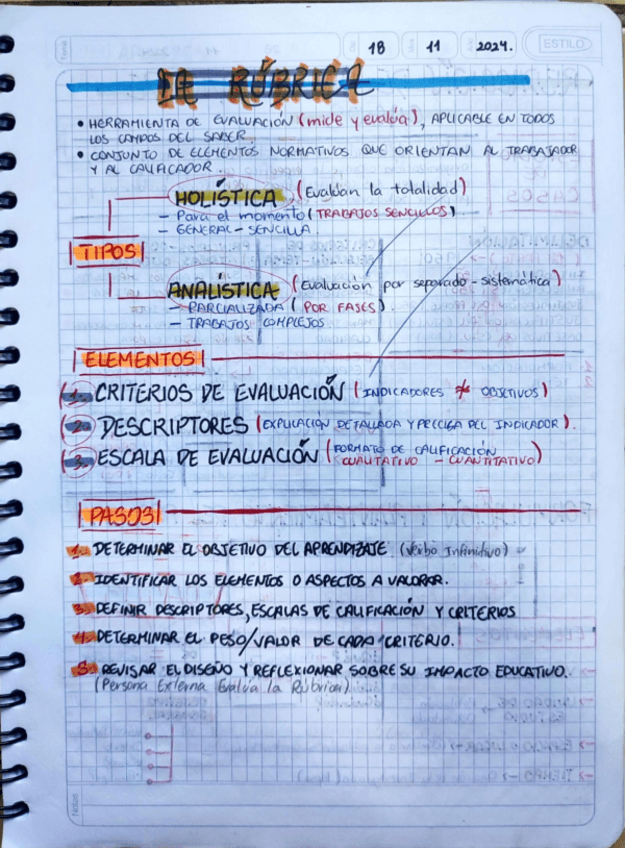 18 11 2024. ESTILO
LA RÚBRICA
• HERRAMIENTA DE EVALUACIÓN (mide y evalúa), APLICABLE EN TODOS
LOS CAMPOS DEL SABER.
• CONJUNTO DE ELEMENTOS NORMATIVOS QUE ORIENTAN AL TRABAJADOR
Y AL CALIFICADOR.
HOLÍSTICA (Evalúan la totalidad)
- Para el momento (TRABAJOS SENCILLOS)
- GENERAL - SENCILLA.
TIPOS
ANALÍSTICA (Evaluación por separado - sistemática)
- PARCIALIZADA (POR FASES).
- TRABAJOS COMPLEJOS
ELEMENTOS
1. CRITERIOS DE EVALUACIÓN (INDICADORES ≠ OBJETIVOS)
2. DESCRIPTORES (EXPLICACIÓN DETALLADA Y PRECISA DEL INDICADOR).
3. ESCALA DE EVALUACIÓN (FORMATO DE CALIFICACIÓN
CUALITATIVO - CUANTITATIVO)
PASOS
1. DETERMINAR EL OBJETIVO DEL APRENDIZAJE (Verbo Infinitivo)
2. IDENTIFICAR LOS ELEMENTOS O ASPECTOS A VALORAR.
3. DEFINIR DESCRIPTORES, ESCALAS DE CALIFICACIÓN Y CRITERIOS
4. DETERMINAR EL PESO/VALOR DE CADA CRITERIO.
5. REVISAR EL DISEÑO Y REFLEXIONAR SOBRE SU IMPACTO EDUCATIVO.
(Persona Externa Evalúa la Rúbrica)
Notas